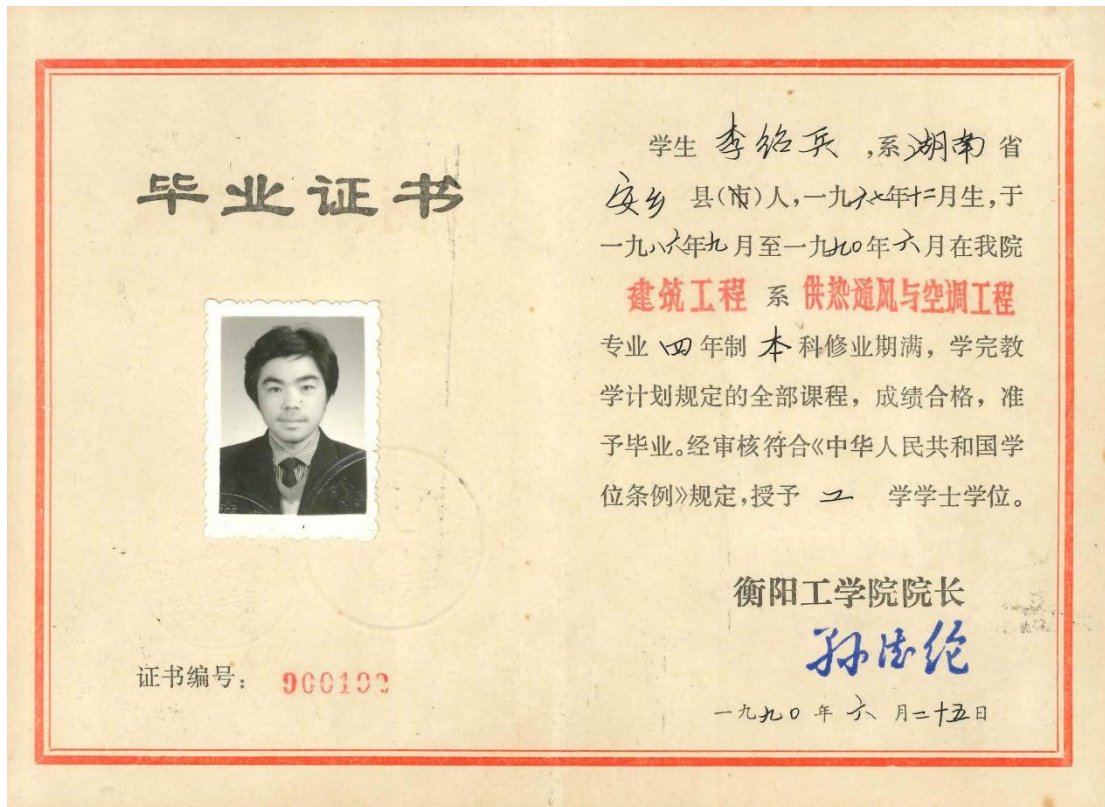 毕业证书
证书编号：
学生 李绍兵 ,系 湖南 省
安乡 县(市)人,一九六七年十二月生,于
一九八六年九月至一九九〇年六月在我院
建筑工程 系 供热通风与空调工程
专业 四 年制 本 科修业期满，学完教
学计划规定的全部课程，成绩合格，准
予毕业。经审核符合《中华人民共和国学
位条例》规定,授予 工 学学士学位。
衡阳工学院院长
一九九〇年 六 月二十五日